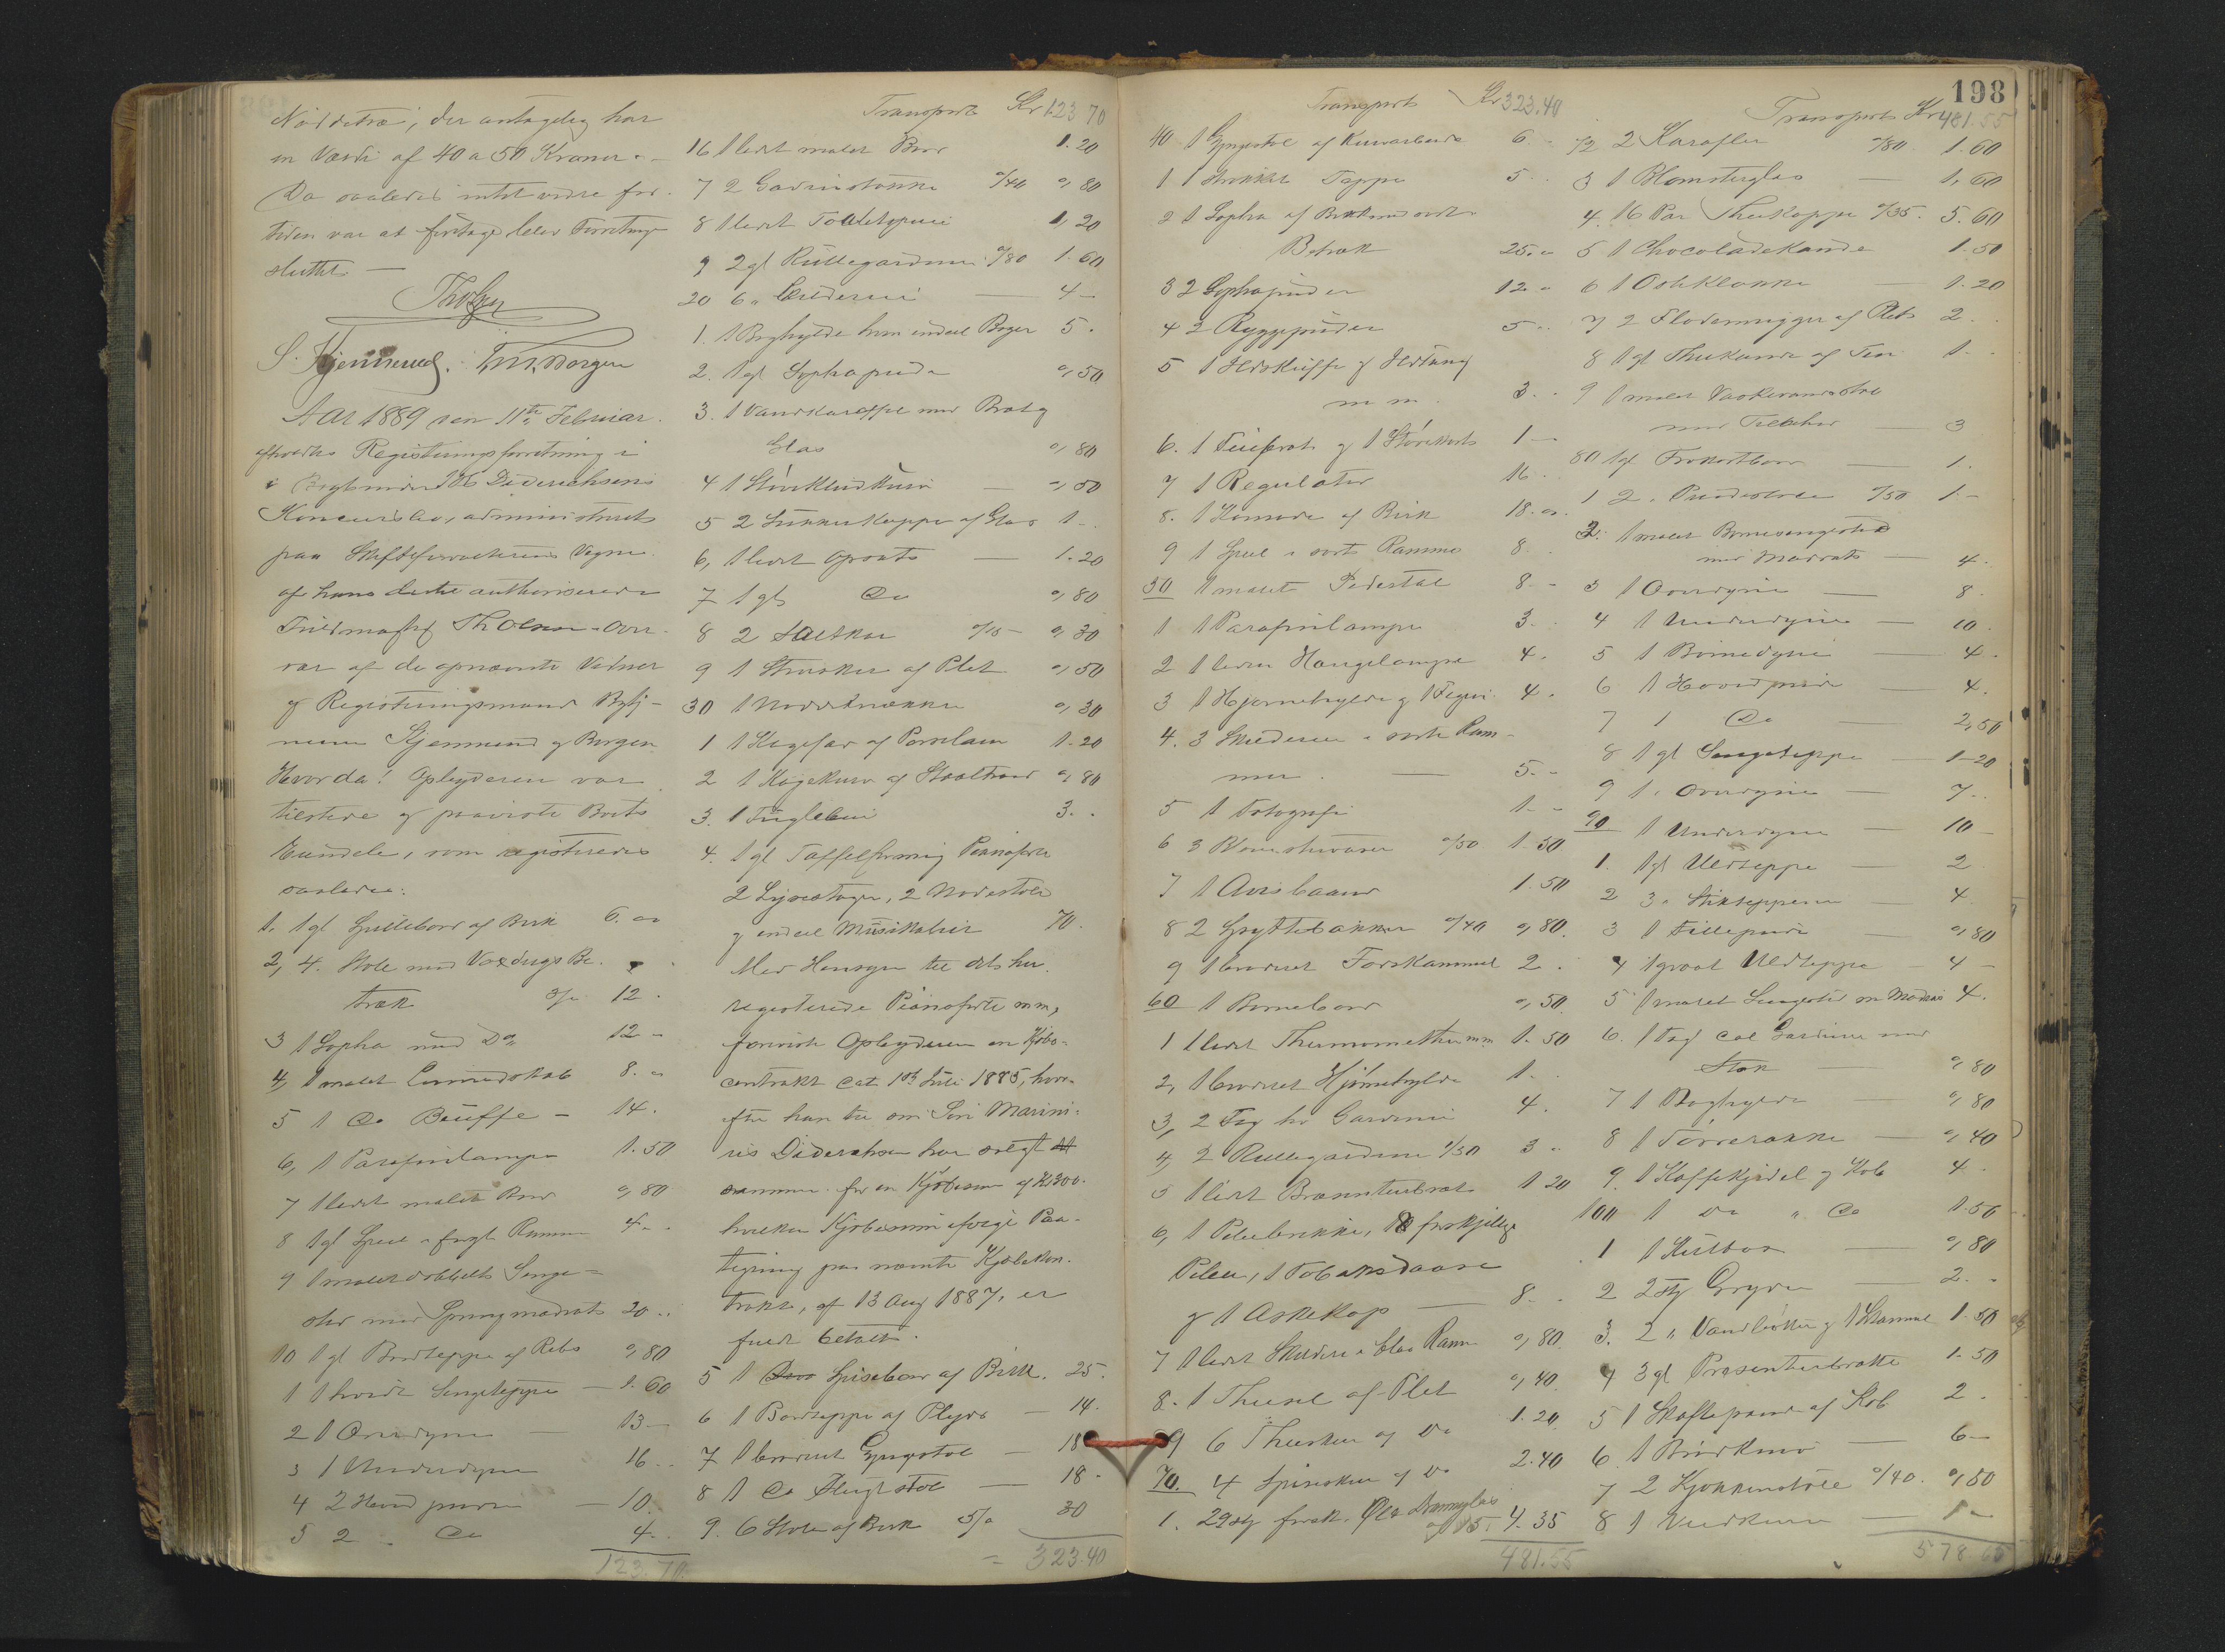 Nöddetræ, der antagelig har
en Værdi af 40 a 50 Kroner. –
Da saaledes intet videre for
tiden var at foretage blev Forretningen
sluttet –
S. Kjennerud. Borgen
Aar 1889 den 11te Februar
afholdtes Registreringsforretning i
i Diderichsens
Konkursbo, administreret
paa Skifteforvalterens Vegne
af hans dertil authoriserede
Fuldmægtig Th Olsen – Over-
vær af de opnævnte Vidner
og Registreringsmænd
Kjennerud og Borgen
Hvorda! Opbyderen var
tilstede og paaviste Boets
Eiendele, som registreredes
saaledes:
1. 1 gl Spillebord af Birk 6. "
2, 4. Stole med Voxdugs Be-
træk 3/" 12.
3 1 Sopha med Do 12 –
4, 1 malet Linnedskab 8. "
5 1 Do Büffe – 14.
6, 1 Parafinlampe 1.50
7 1 lidet malet Bord ", 80
8 1 gl Speil i forgt Ramme 4. .
9 1 malet dobbelt Senge-
sted med Springmadrats 20 ..
10 1 gl Bordteppe af Rebs ", 80
1 1 hvidt Sengeteppe – 1.60
2 1 Overdyne – 13 –
3 1 Underdyne 16 ..
4 2 Hovedpuder – 10.
5 2 – Do 4. .
123.70
Transport Kr 123 70
16 1 lidet malet Bord 1.20
7 2 Gardinstænger "/40 ", 80
8 1 lidet Toiletspeil 1, 20
9 2 gl Rüllegardiner "/80 1.60
20 6 " Skilderier – 4 –
1. 1 Boghylde hvori endeel Bøger 5.
2. 1 gl Sophapude ", 50
3. 1 Vandkaraffel med Bret og
Glas ", 80
4 1 – ", 50
5 2 Sukkerkopper af Glas 1 –
6, 1 lidet Opsats – 1.20
7 1 gl Do ", 80
8 2 Saltkar "/15 – ", 30
9 1 Strøske af Plet ", 50
30 1 Nøddeknækker ", 30
1 1 Kagefad af Porcelain 1.20
2 1 Kagekurv af Staaltraad ", 80
3. 1 Füglebuur 3. .
4. 1 gl Taffelformig Pianoforte
2 Lysestager, 2 Nodestole
og endeel Müsikalier 70.
Med Hensyn til dets her
registerede Pianoforte mm,
foreviste Opbyderen en Kjøbe-
contrakt dat 1ste Juli 1885, hvor-
efter han til sin Søn Marini-
us Diderichsen har solgt
samme for en Kjøbesum af Kr 300.
hvilken Kjøbesum ifølge Paa-
tegning paa nævnte Kjøbekon-
trakt, af 13 Aug 1887, er
fuldt betalt.
5 1 Spisebord af Birk. 25.
6 1 Bordteppe af Plyds – 14.
7 1 broderet Gyngestol – 18
8 1 Do – 18 –
9. 6 Stole af Birk 5/" 30
= 323.40
Transport Kr 323.40
40 1 Gyngestol af Kurvarbeide 6. –
1 1 strikket Teppe 5. .
2 1 Sopha af Birk med sort
Betræk 25. "
3 2 Sophapuder 12. "
4 2 Rygpuder 5 ..
5 1 Ildskuffe og Ildtang
m m. 3. .
6. 1 Feiebret og 1 Støvekost 1 –
7 1 Regulator 16 .
8. 1 Komode af Birk 18. "
9 1 Speil i sort Ramme 8.
50 1 malet Pidestal 8. –
1 1 Parafinlampe 3. .
2 1 liden Hængelampe 4.
3 1 Hjørnehylde og 1 Figur 4.
4. 3 Skilderier i sorte Ram-
mer. – 5. .
5 1 Fotografi 1 –
6 3 Blomstervaser "/50 1.50
7 1 Avisbaand 1.50
8 2 "/40 ", 80.
9 1 broderet Forskammel 2 .
60 1 Børnebord ", 50.
1 1 lidet Thermomether mm 1.50
2, 1 broderet Hjørnehylde 1.
3, 2 Fag hv Gardiner 4.
4, 2 Rullegardiner 1/50 3 "
5 1 lidet Præsenterbret 1 20
6, 1 Pibebrikke, 18 forskjellige
Piber, 1 Tobaksdaase
og 1 Askekop – 8. .
7 1 lidet Skilderi i Glas Ramme ", 80.
8. 1 Thesil af Plet ", 40.
9 6 Theskeer af Do 1.20
70. 4 Spiseskeer af Do 2.40
1. 29 stk forsk. Øl & Dramglas
af "15. 4.35
481.55
198
Transport Kr 481.55
72 2 Karafler "/80 1.60
3 1 Blomsterglas – 1, 60
4. 16 Par Thekopper "/35. 5.60
5 1 Chocoladekande 1.50
6 1 Osteklokke – 1.20
7 2 Flødemugger af Plet 2.
8 1 gl Thekande af Tin 1.
9 1 malet Vaskevandsstel
med Tilbehør – 3
80 1 gl Frokostbord – 1.
1 2 " "/50 1. –
2. 1 malet Børnesengested
med Madrats – 4.
3 1 Overdyne – 8.
4 1 Underdyne – 10
5 1 Børnedyne – 4.
6 1 Hovedpude 4.
7 1 Do – 2,50
8 1 gl Sengeteppe – 1–20
9 1 " Overdyne – 7 ..
90 1 Underdyne – 10 –
1. 1 gl Uldteppe – 2
2 3 " Stikteppener – 4
3 1 Fillepude – ", 80
4 1 graat Uldteppe – 4 –
5 1 malet Sengested m Madras 4.
6. 1 Fag col Gardiner med
Stok – ", 80
7 1 Boghylde ", 80
8 1 Tørrerække – ", 40
9. 1 Kaffekjedel af Kob 4 .
100 1 Do " Do 1.50
1 1 – ", 80
2 2 stk Gryder – 2. .
3. 2 " Vandbøtter og 1 Skammel 1.50
4 3 gl Præsenterbrætter 1.50
5 1 Skaftepande af Kob 2.
6 1 – 6 –
7 2 Kjøkkenstole "/40. ", 80
8 1 Vedkurv – 1 –
578.65